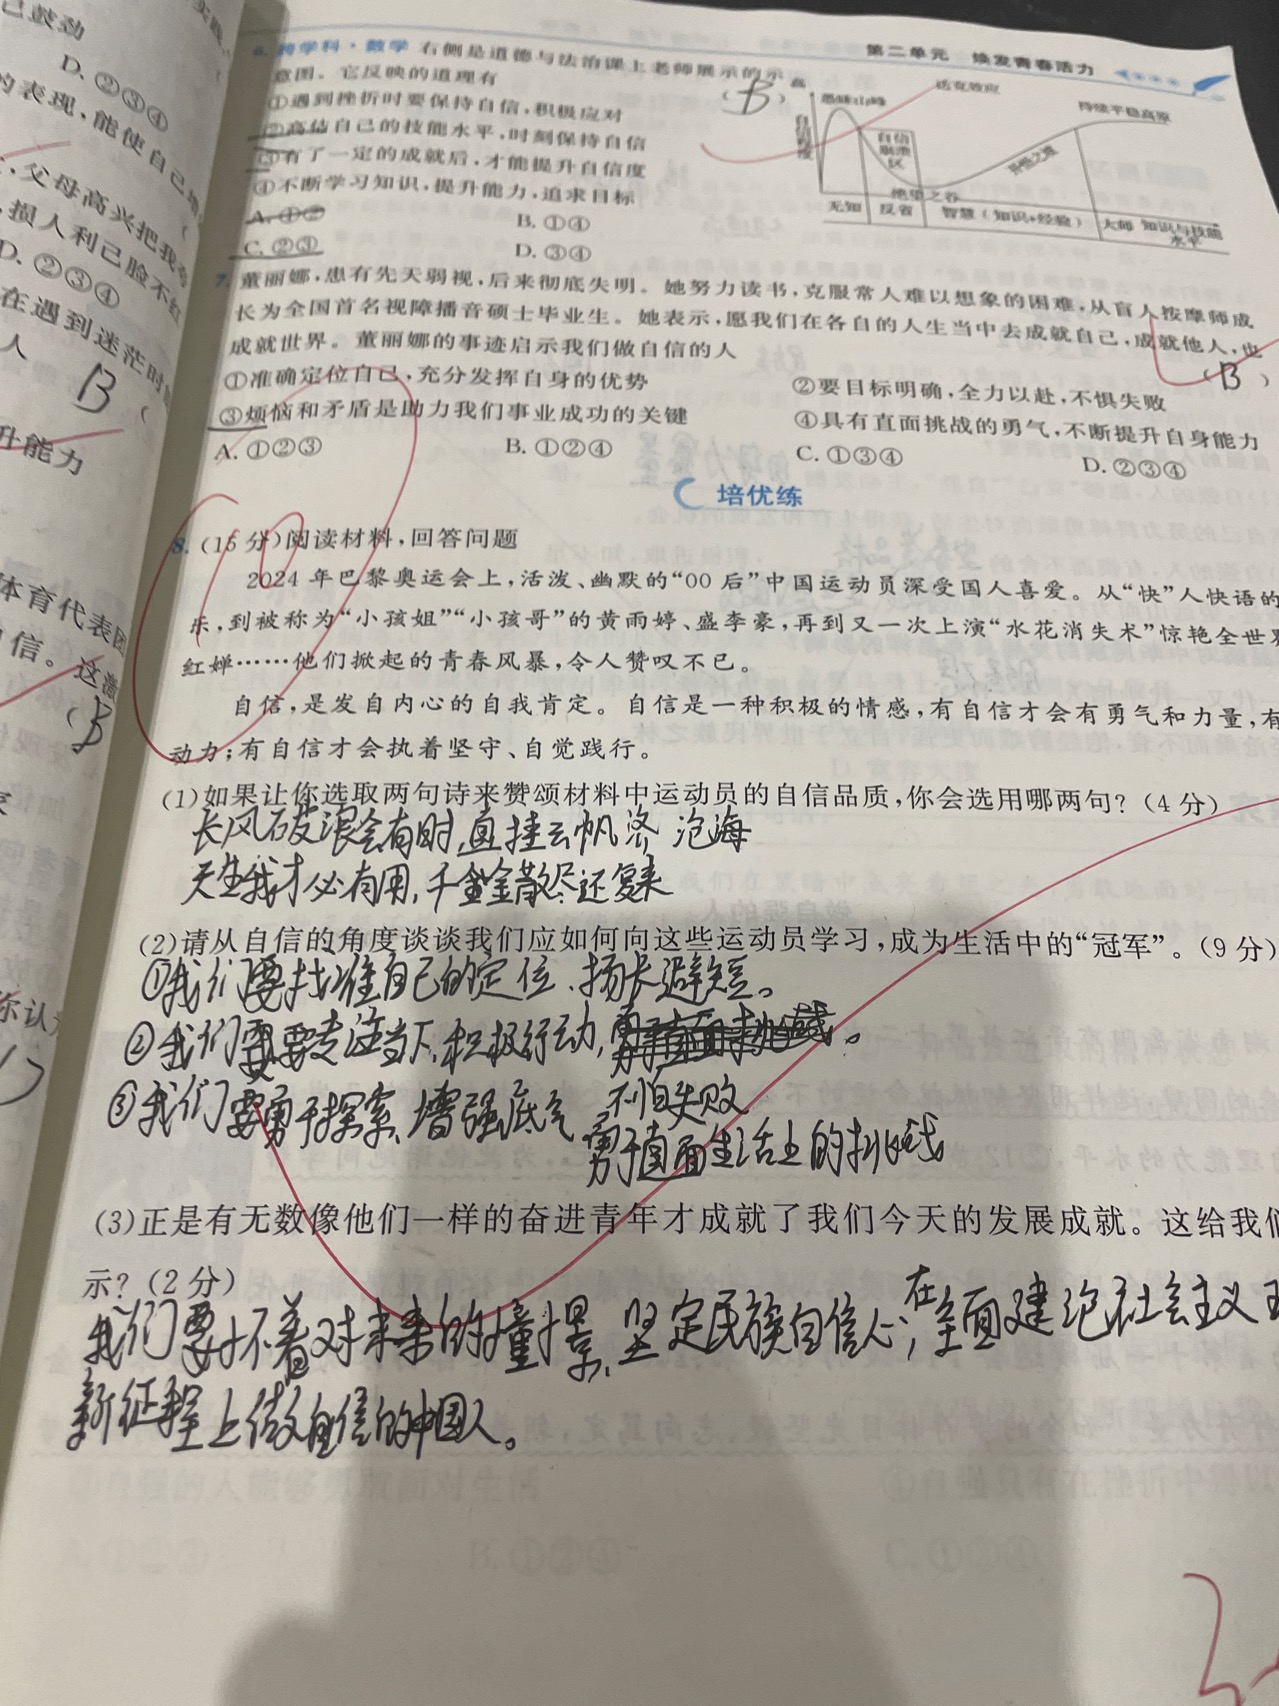 已鼓劲
D. ②③④
的表现,能使自己
父母高兴把我
损人利己脸不红
D. ②③④
在遇到迷茫时
人
B
升能力
体育代表团
信。这
(B
你认
第二单元 焕发青春活力
6. 跨学科·数学 右侧是道德与法治课上老师展示的示
意图。它反映的道理有
(B)
①遇到挫折时要保持自信,积极应对
②高估自己的技能水平,时刻保持自信
③有了一定的成就后,才能提升自信度
④不断学习知识,提升能力,追求目标
A. ①②
B. ①④
C. ②③
D. ③④
高
自信程度
愚昧山峰
达克效应
持续平稳高原
自信崩溃区
开悟之坡
绝望之谷
无知 反省 智慧(知识+经验) 大师 知识与技能水平
7. 董丽娜,患有先天弱视,后来彻底失明。她努力读书,克服常人难以想象的困难,从盲人按摩师成
长为全国首名视障播音硕士毕业生。她表示,愿我们在各自的人生当中去成就自己,成就他人,也
成就世界。董丽娜的事迹启示我们做自信的人
(B)
①准确定位自己,充分发挥自身的优势
②要目标明确,全力以赴,不惧失败
③烦恼和矛盾是助力我们事业成功的关键
④具有直面挑战的勇气,不断提升自身能力
A. ①②③
B. ①②④
C. ①③④
D. ②③④
培优练
8. (15分)阅读材料,回答问题
2024年巴黎奥运会上,活泼、幽默的“00后”中国运动员深受国人喜爱。从“快”人快语的
乐,到被称为“小孩姐”“小孩哥”的黄雨婷、盛李豪,再到又一次上演“水花消失术”惊艳全世界
红婵……他们掀起的青春风暴,令人赞叹不已。
自信,是发自内心的自我肯定。自信是一种积极的情感,有自信才会有勇气和力量,有
动力;有自信才会执着坚守、自觉践行。
(1)如果让你选取两句诗来赞颂材料中运动员的自信品质,你会选用哪两句?(4分)
长风破浪会有时,直挂云帆济沧海
天生我才必有用,千金散尽还复来
(2)请从自信的角度谈谈我们应如何向这些运动员学习,成为生活中的“冠军”。(9分)
①我们要找准自己的定位、扬长避短。
②我们要专注当下,积极行动,
不怕失败
③我们要勇于探索、增强底气
勇于直面生活上的挑战
(3)正是有无数像他们一样的奋进青年才成就了我们今天的发展成就。这给我们
示?(2分)
我们要怀着对未来的憧憬、坚定民族自信心;在全面建设社会主义
新征程上做自信的中国人。